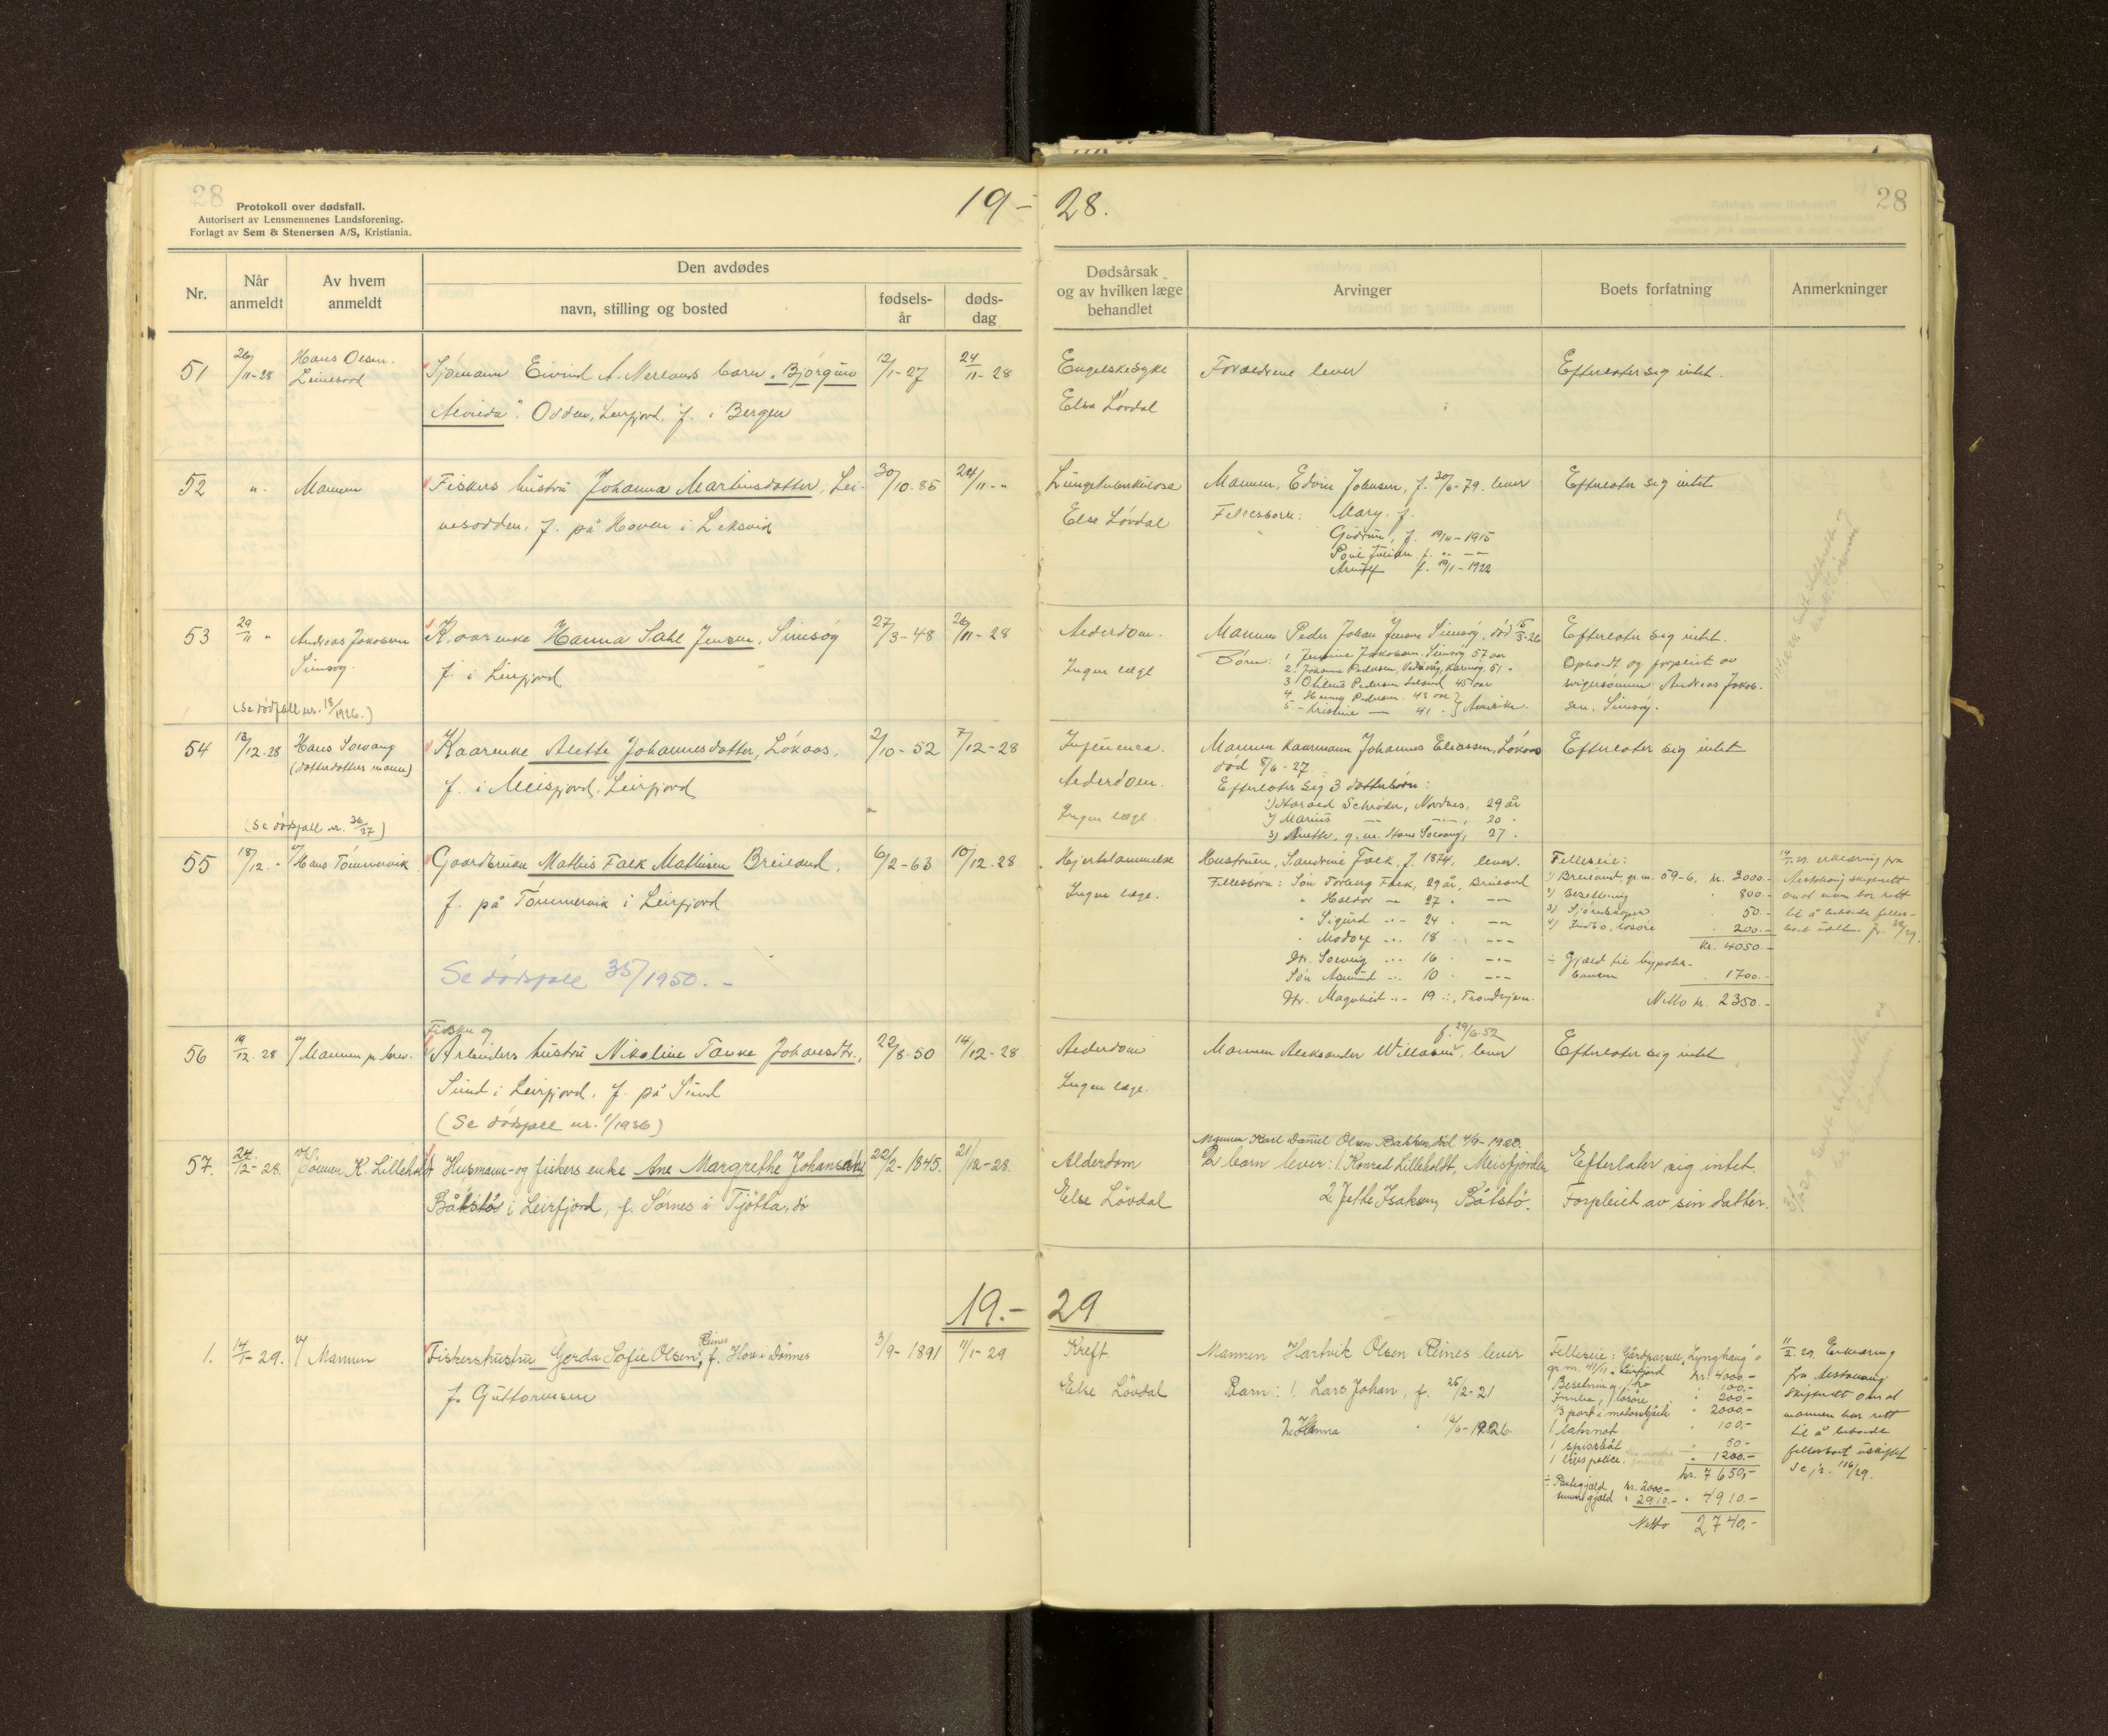 28
Protokoll over dødsfall.
Autorisert av Lensmennenes Landsforening.
Forlagt av Sem & Stenersen A/S, Kristiania.
19- 28.
28
Nr.
Når anmeldt
Av hvem anmeldt
Den avdødes
navn, stilling og bosted
fødsels-år
døds-dag
Dødsårsak og av hvilken læge behandlet
Arvinger
Boets forfatning
Anmerkninger
51
26/11-28
Hans Olsen.
Leinesodd
Sjømann Eivind A. Nerlands barn "Bjørgun
Alvida". Odden, Leirfjord, f. i Bergen
12/1-27
24/11-28
Engelskesyke
Elsa Løvdal
Forældrene lever
Efterlater sig intet.
52
"
Mannen
Fiskers hustru Johanna Martinsdatter, Lei-
nesodden, f. på Hoven i Leksvid
30/10.85
24/11--
Lungetuberkulose
Else Løvdal
Mannen, Edvin Johnsen, f. 30/6-79. lever
Fellesbarn: Mary f.
Gudrun, f. 19/11-1915
f. " --
f. 19/1-1922
Efterlater sig intet
53
29/11 "
Andreas Jakobsen
Simsøy.
(Se dødsfall nr. 18/1926.)
Kaarenke Hanna Sahl Jensen, Simsøy
f. i Leirfjord
27/3-48
26/11-28
Alderdom.
Ingen læge
Mannen Peder Johan Jensen Simsøy, død 15/3-26
Børn: 1 Jensine Jakobsen, Simsøy 57 aar
2. Johanna Pedersen, Karmøy, 51 "
3 Othilius Pedersen 45 aar
4 Henny Pedersen 43 aar } Amerika.
5 - Kristine — 41 "
Efterlater sig intet.
Ophold og forpleiet av
svigersønnen, Andreas Jakob-
sen, Simsøy.
54
13/12.28
Hans Solvang
(datterdatters mann)
(Se dødsfall nr. 36/27)
Kaarenke Alette Johannesdatter, Løkaas,
f. i Meisfjord, Leirfjord
2/10-52
7/12-28
Influensa.
Alderdom.
Ingen læge.
Mannen Kaarmann Johannes Eliassen, Løkaas
død 8/6-27.
Efterlater sig 3 datterbørn:
1) Harald Schrøder, Nordnes, 29 år
2) Marius — —"—, 20 "
3) Anette, g. m. Hans Solvang, 27 "
Efterlater sig intet
55
18/12. "
v/ Hans Tømmervik
Gaardbruker Mathis Falk Mathisen Breiland,
f. på Tømmervik i Leirfjord
Se dødsfall 35/1950. -
6/2-63
10/12.28
Hjertelammelse
Ingen læge.
Hustruen, Sandrine Falk, f. 1874, lever.
Fellesbørn: Søn Torberg Falk, 29 år, Breiland
" Haldor — 27 " —"—
" Sigurd -"- 24 " —"—
" Modolf -"- 18 " -"-
Dtr. Solveig -"- 16 " -"-
Søn Asmund -"- 10 " -"-
Dtr. Magnhild -"- 19 -"-, Trondhjem.
Felleseie:
1) Breiland, gr. nr. 59-6, kr. 3000.-
2) Besetning " 800.-
3) Sjøredskaper " 50.-
4) Indbo, løsøre " 200.-
kr. 4050.-
÷ Gjæld til hypotek-
banken " 1700.-
Netto kr. 2350.-
14/1.29. erklæring fra
Alstahaug skifterett
om at enken har rett
til å beholde felles-
boet uskiftet. jr. 32/29.
56
19/12.28
v/ Mannen pr. brev.
Fisker og
Arbeiders hustru Nikoline Tanke Johansdtr.,
Sund i Leirfjord. f. på Sund
(Se dødsfall nr. 1/1936)
22/8.50
14/12-28.
Alderdom
Ingen læge.
f. 29/6.52
Mannen Aleksander Willasen, lever
Efterlater sig intet
57.
24./12-28.
v/ Sønnen K. Lilleholdt
Husmanns- og fiskers enke Ane Margrethe Johansdtr.
Båtstø i Leirfjord, f. Sørnes i Tjøtta,
22/2-1845.
21/12-28.
Alderdom
Else Lövdal
Mannen Karl Daniel Olsen Bakken død 4/9-1920.
2 barn lever: 1. Konrad Lilleholdt, Meisfjorden
2. Jethe Isaksen, Båtstø.
Efterlater sig intet.
Forpleiet av sin datter.
19.- 29
1.
14/1-29.
v/ Mannen
Fiskershustru Gerda Sofie Olsen Reines, f. Hov i Dønnes
f. Guttormsen
3/9-1891
11/1-29
Kreft
Else Lövdal
Mannen Hartvik Olsen Reines lever
Barn: 1. Lars Johan, f. 25/2-21
2. Hanna " 14/6-1926.
Felleseie: Gårdparsell "Lynghaug"
gr. nr. 41/11 i Leirfjord kr. 4000.-
Besetning, 100.-
Innbo, løsøre " 200.-
1/3 part i motorskjøite " 2000.-
1 laksnot " 100,-
1 spissbåt " 50-
1 livspolice. " 1200.-
kr. 7650,-
÷ Pantegjæld kr. 2000-
annen gjæld " 2910.- " 4910.-
Netto 2740,-
11/2.29. Erklæring
fra Alstahaug
skifterett om at
mannen har rett
til å beholde
fellesboet uskiftet
se jr. 116/29.